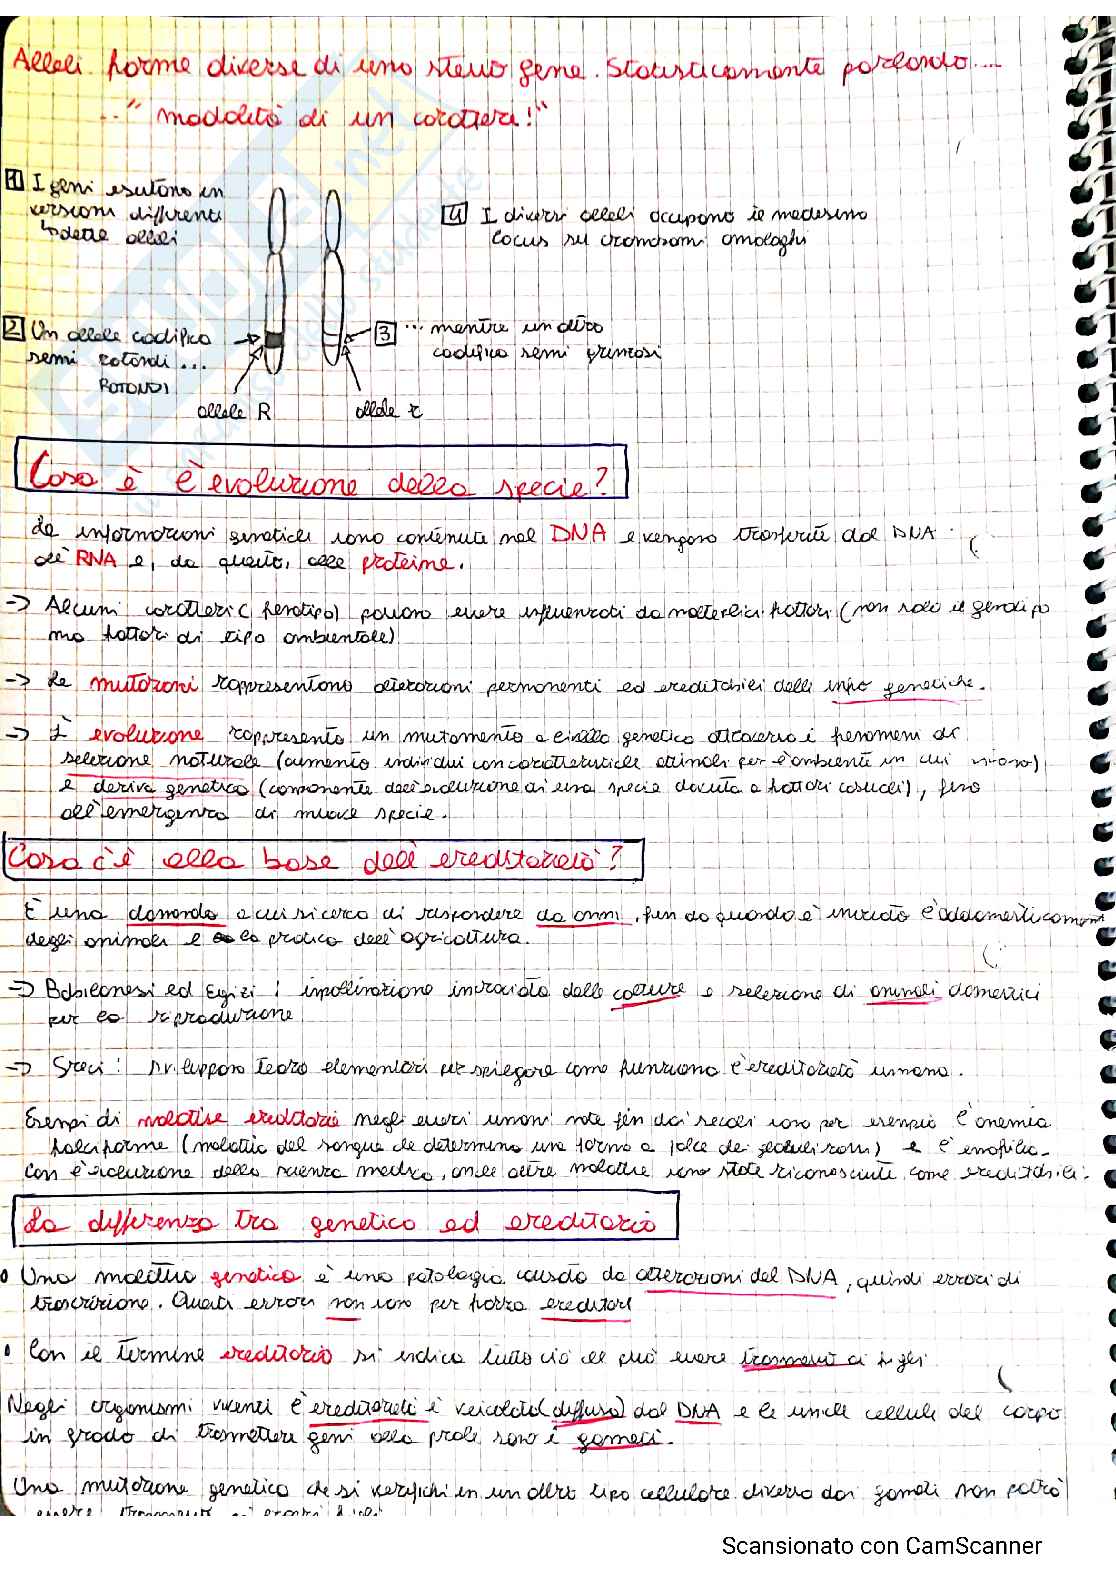 Alleli forme diverse di uno stesso gene. Statisticamente parlando....
.." modalità di un carattere!"
1 I geni esistono in
versioni differenti
↳ dette alleli
4 I diversi alleli occupano il medesimo
locus su cromosomi omologhi
2 Un allele codifica
semi rotondi ...
ROTONDI
3 ... mentre un altro
codifica semi grinzosi
allele R
allele r
Cosa è l'evoluzione della specie?
Le informazioni genetiche sono contenute nel DNA e vengono trasferite dal DNA
all'RNA e, da questo, alle proteine.
-> Alcuni caratteri (fenotipo) possono essere influenzati da molteplici fattori (non solo il genotipo
ma fattori di tipo ambientale)
-> Le mutazioni rappresentano alterazioni permanenti ed ereditabili delle info genetiche.
-> L'evoluzione rappresenta un mutamento a livello genetico attraverso i fenomeni di
selezione naturale (aumento individui con caratteristiche ottimali per l'ambiente in cui vivono)
e deriva genetica (componente dell'evoluzione di una specie dovuta a fattori casuali), fino
all'emergenza di nuove specie.
Cosa c'è alla base dell'ereditarietà?
È una domanda a cui si cerca di rispondere da anni, fin da quando è iniziato l'addomesticament
degli animali e la pratica dell'agricoltura.
-> Babilonesi ed Egizi: impollinazione incrociata delle colture e selezione di animali domestici
per la riproduzione
-> Greci: sviluppano teorie elementari per spiegare come funziona l'ereditarietà umana.
Esempi di malattie ereditarie negli esseri umani note fin dai secoli sono per esempio l'anemia
falciforme (malattia del sangue che determina una forma a falce dei globuli rossi) e l'emofilia.
Con l'evoluzione della scienza medica, anche altre malattie sono state riconosciute come ereditabili.
La differenza tra genetico ed ereditario
• Una malattia genetica è una patologia causata da alterazioni del DNA, quindi errori di
trascrizione. Questi errori non sono per forza ereditari
• Con il termine ereditario si indica tutto ciò che può essere trasmesso ai figli
Negli organismi viventi l'ereditarietà è veicolata (diffusa) dal DNA e le uniche cellule del corpo
in grado di trasmettere geni alla prole sono i gameti.
Una mutazione genetica che si verifichi in un altro tipo cellulare diverso dai gameti non potrà
Scansionato con CamScanner